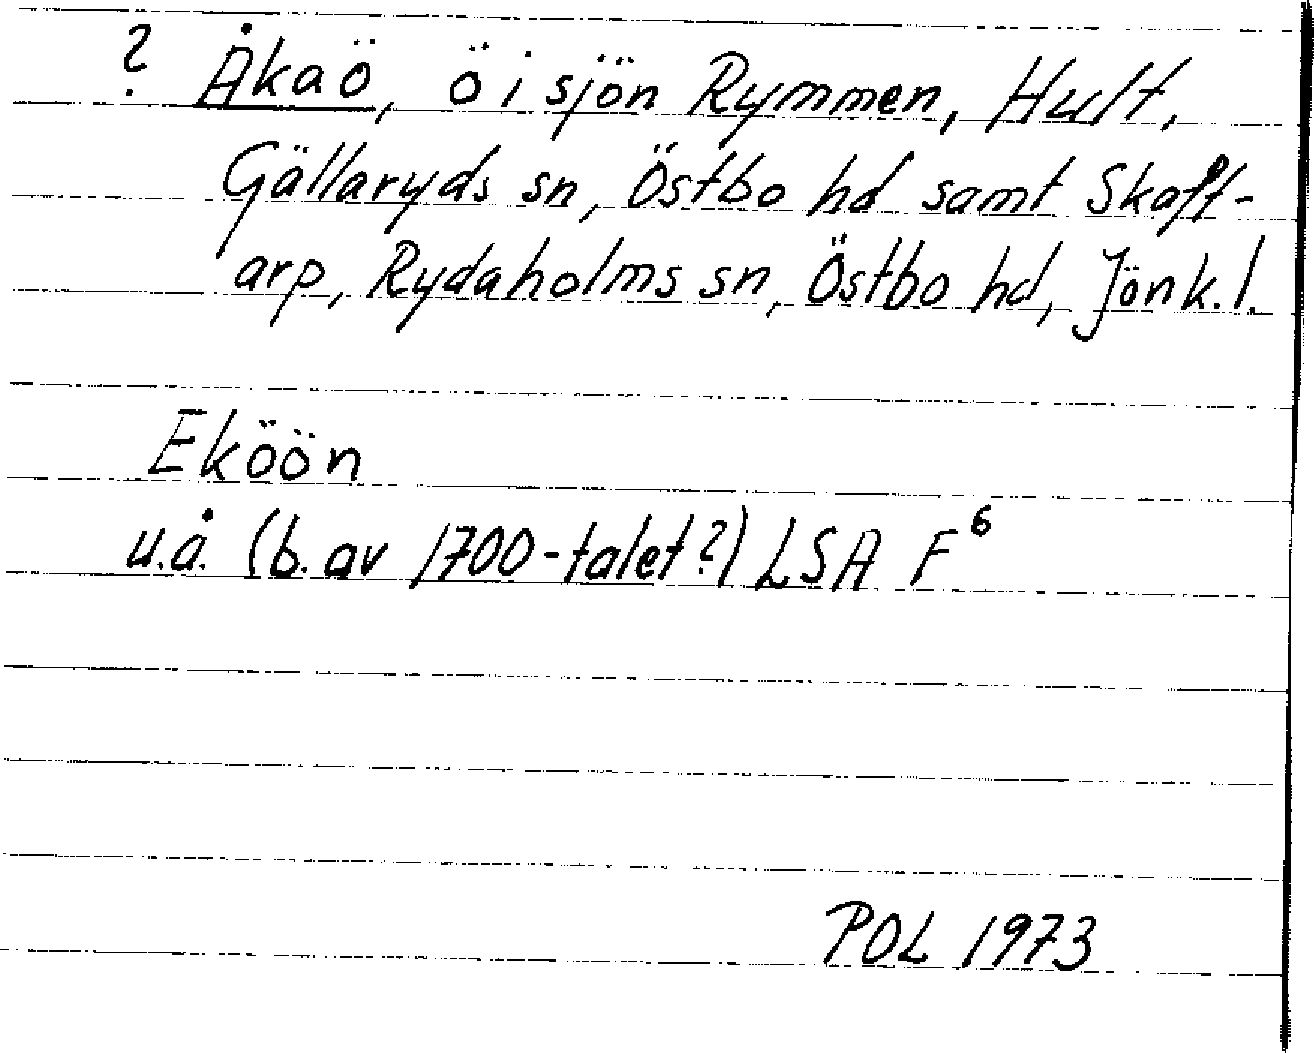 ? Åkaö, ö i sjön Rymmen, Hult,
Gällaryds sn, Östbo hd samt Skaft-
arp, Rydaholms sn, Östbo hd, Jönk. l.
Eköön
u.å. (b. av 1700-talet?) LSA F⁶
POL 1973